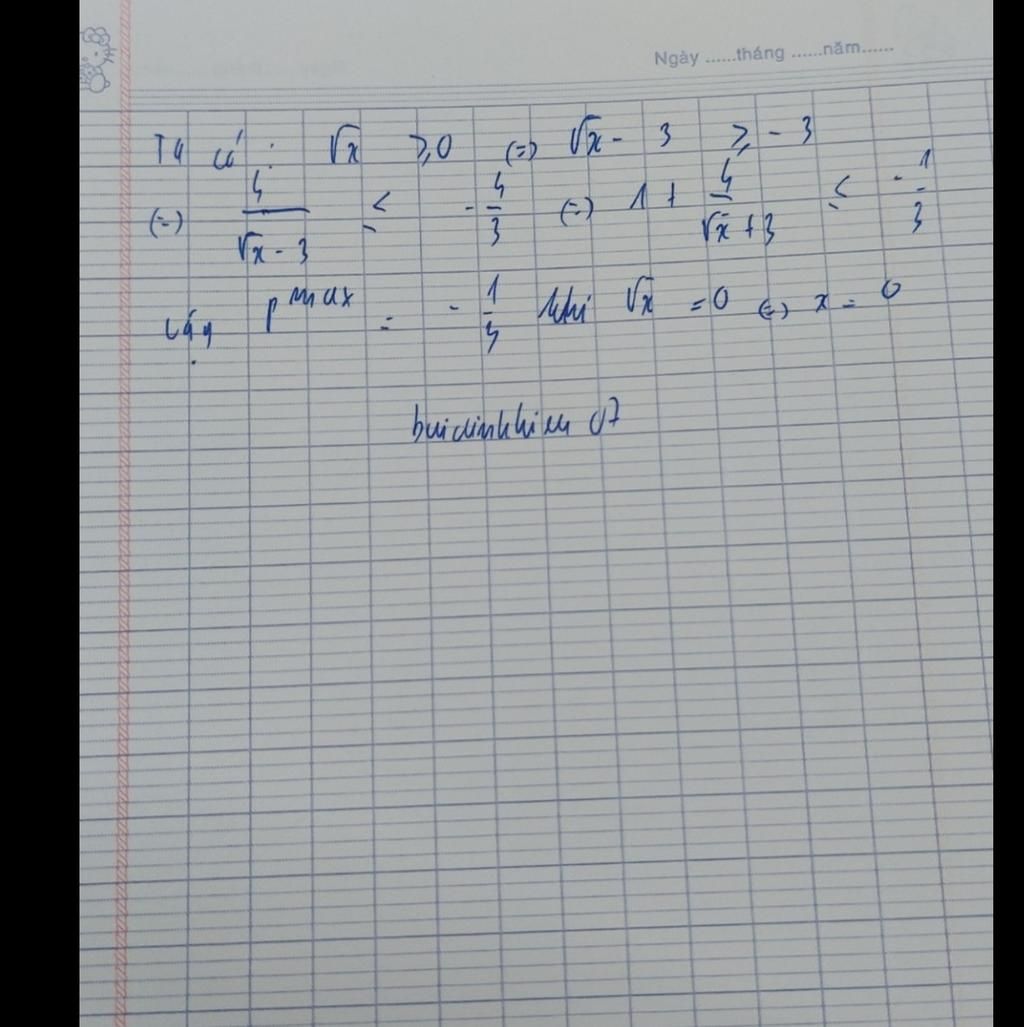 Ngày ......tháng ......năm......
Ta có : √x ≥ 0 (=) √x - 3 ≥ - 3
(=) 4/(√x - 3) ≤ - 4/3 (=) 1 + 4/(√x + 3) ≤ - 1/3
Vậy Pmax = - 1/3 khi √x = 0 (=) x = 0
buidinhhieu 07